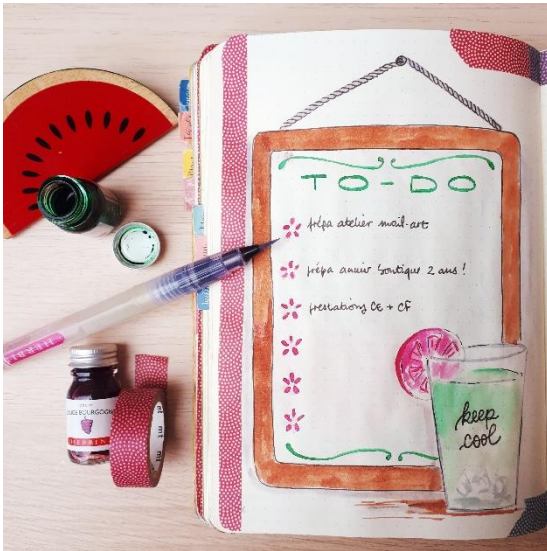 TO-DO
prépa atelier mail-art
prépa anniv boutique 2 ans !
prestations CE + CF
keep
cool
HERBIN
ROUGE BOURGOGNE
HERBIN
mt mt